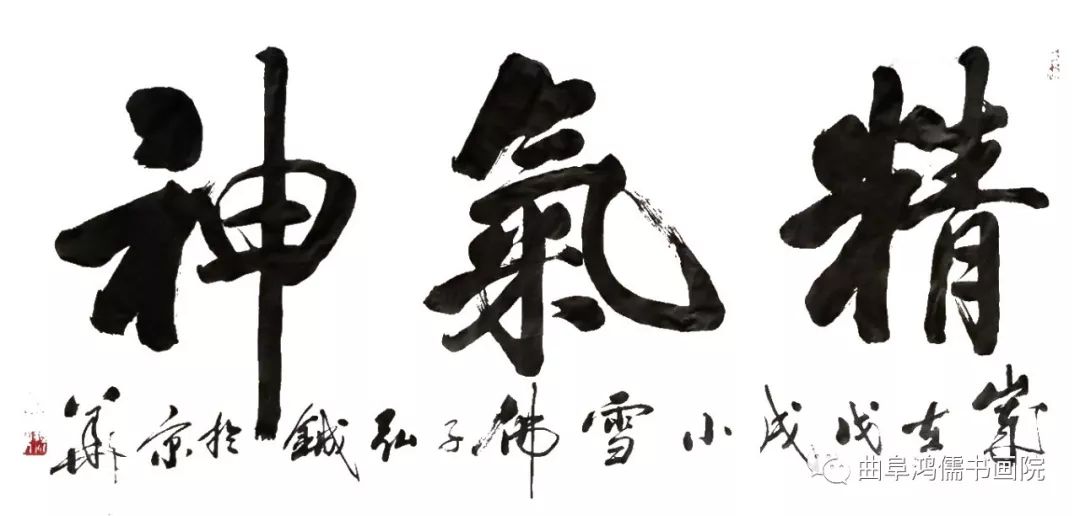 精氣神
嵗在戊戌小雪佛子弘鋮於京華
曲阜鸿儒书画院